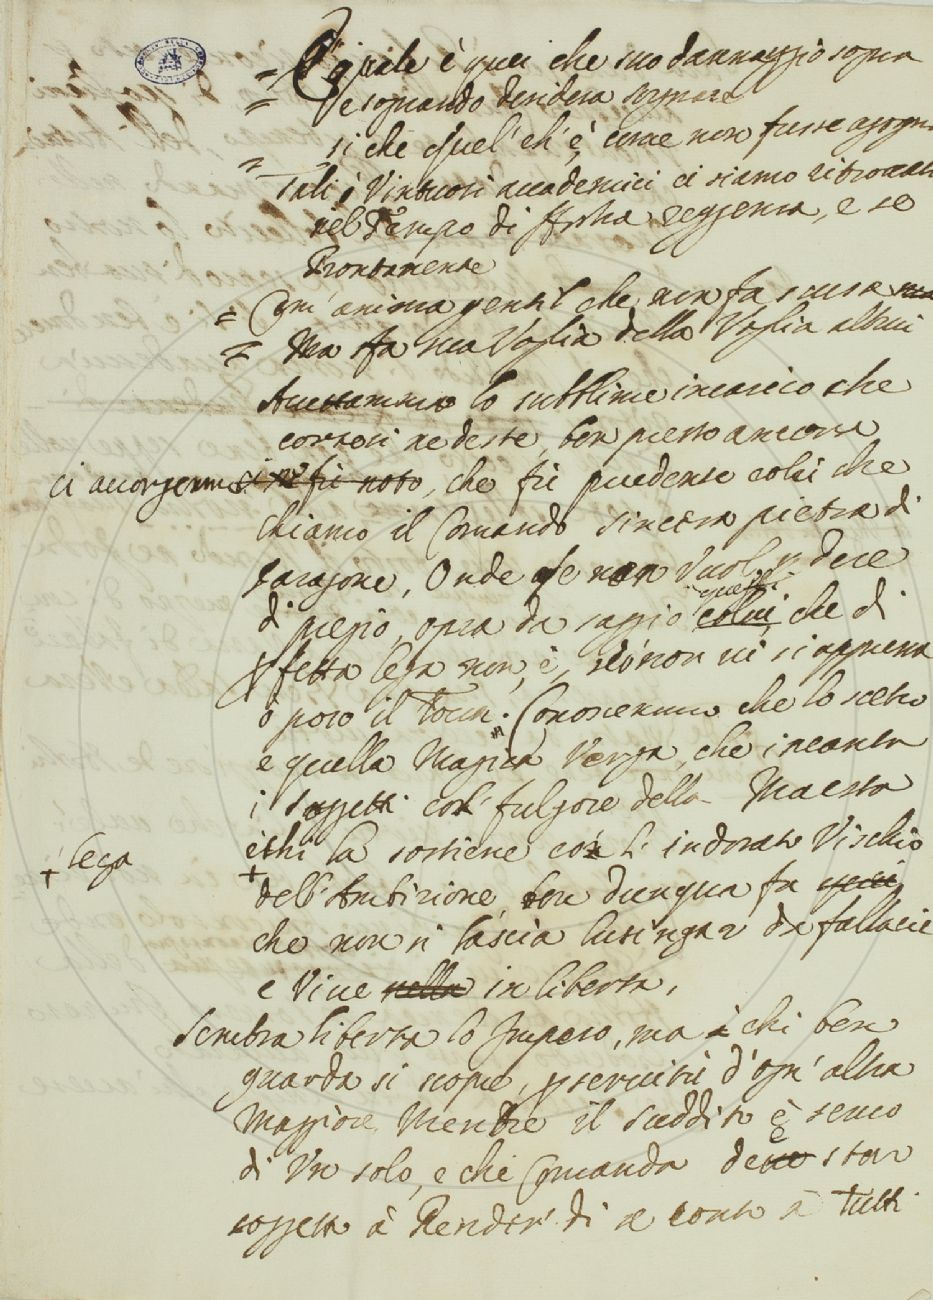 = E quale è quei che suo dannaggio sogna
= Che sognando desidera sognare
= si che quel ch' è, come non fusse agogna
Tali, i Virtuosi accademici ci siamo ritrouati
nel Tempo di reggenza, e se
Prontamente
= Com' anima gentil che non fa scusa
= Ma fa sua Voglia della Voglia altrui
lo subblime incarico che
ne deste, ben presto ancora
ci auorgemmo ci ne fù noto, che fù prudente colui che
chiamo il Comando sincera pietra di
paragone, Onde se non Vuol perdere
di pregio, opra da saggio quegli colui, che di
perfetta lega non, è, se non ui si appressa
ò poco il Tocca. Conoscemmo che lo scetro
e quella Magica Verga, che incanta
i soggetti col fulgore della Maesta
+ lega e chi la sostiene con l' indorato Vischio
+ dell' Ambizione, ben dunqua fa quei
che non si lascia lusingar da fallacie
e Viue nella in liberta,
Sembra liberta lo Impero, ma à chi ben
guarda si scopre, pseruitù d'ogn' altra
Maggiore, Mentre il suddito è seruo
di Vn solo, e chi Comanda deue star
soggetto à Render' di se conto à Tutti